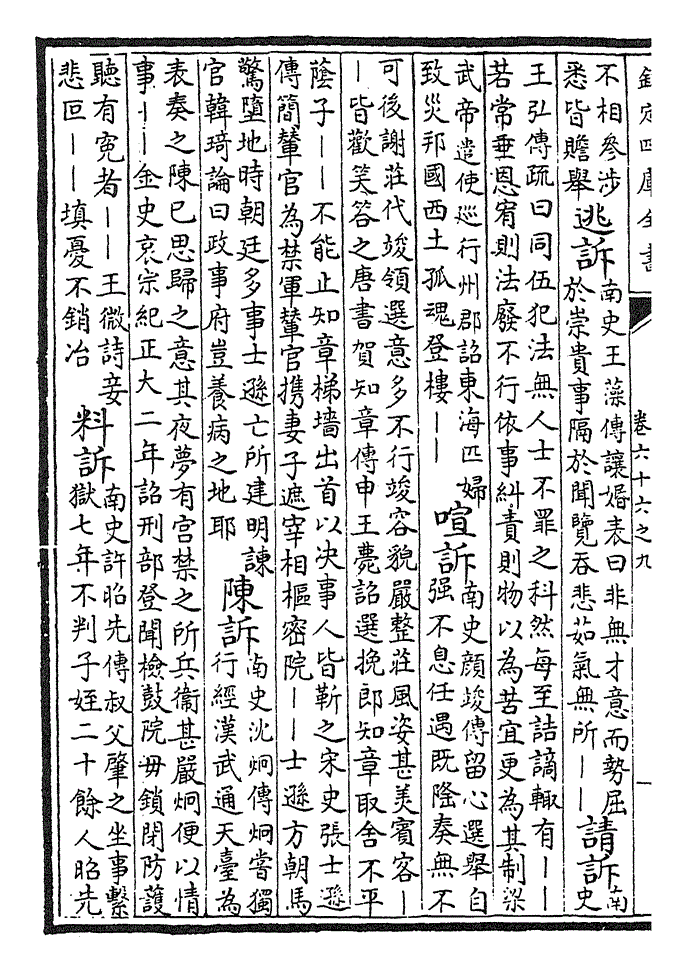 欽定四庫全書
卷六十六之九
不相參涉
悉皆贍舉
逃訴
南史王藻傳讓婚表曰非無才意而勢屈
於崇貴事隔於聞覽吞悲茹氣無所丨丨
請訴
南
史
王弘傳疏曰同伍犯法無人士不罪之科然每至詰謫輙有丨丨
若常垂恩宥則法廢不行依事糾責則物以為苦宜更為其制梁
武帝遣使巡行州郡詔東海匹婦
致災邦國西土孤魂登樓丨丨
喧訴
南史顔竣傳留心選舉自
强不息任遇既隆奏無不
可後謝莊代竣領選意多不行竣容貌嚴整莊風姿甚美賓客丨
丨皆歡笑答之唐書賀知章傳申王薨詔選挽郎知章取舍不平
蔭子丨丨不能止知章梯墻出首以决事人皆靳之宋史張士遜
傳簡輦官為禁軍輦官携妻子遮宰相樞密院丨丨士遜方朝馬
驚墮地時朝廷多事士遜亡所建明諫
官韓琦論曰政事府豈養病之地耶
陳訴
南史沈炯傳炯嘗獨
行經漢武通天臺為
表奏之陳已思歸之意其夜夢有宫禁之所兵衞甚嚴炯便以情
事丨丨金史哀宗紀正大二年詔刑部登聞檢鼓院毋鎖閉防護
聽有寃者丨丨王微詩妾
悲叵丨丨填憂不銷冶
料訴
南史許昭先傳叔父肇之坐事繫
獄七年不判子姪二十餘人昭先